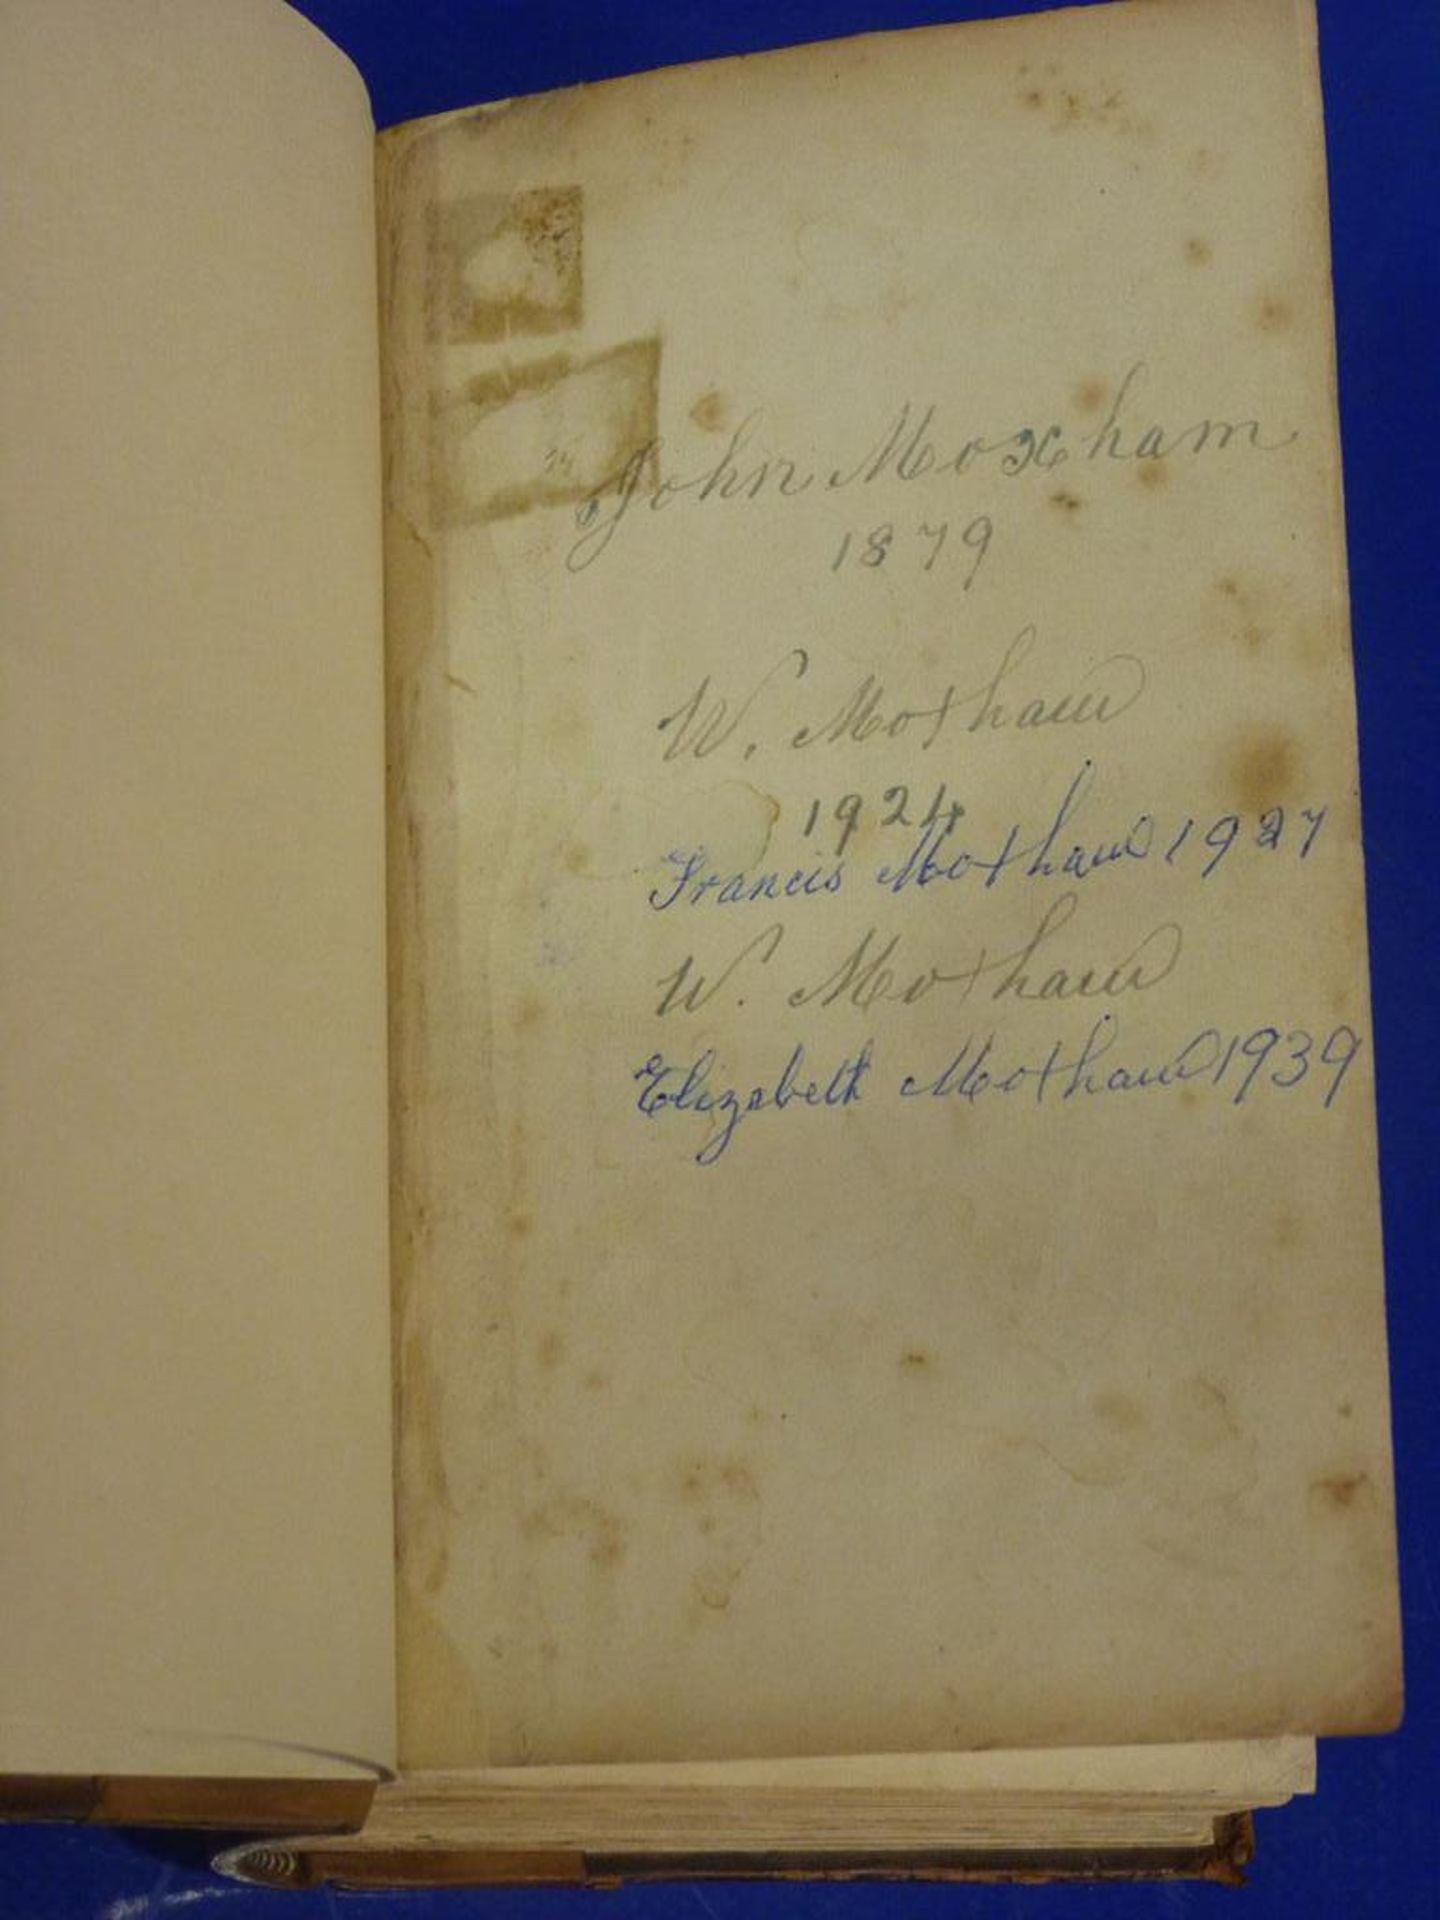 John Moxham
1879
W. Moxham
1924
Francis Moxham 1927
W. Moxham
Elizabeth Moxham 1939